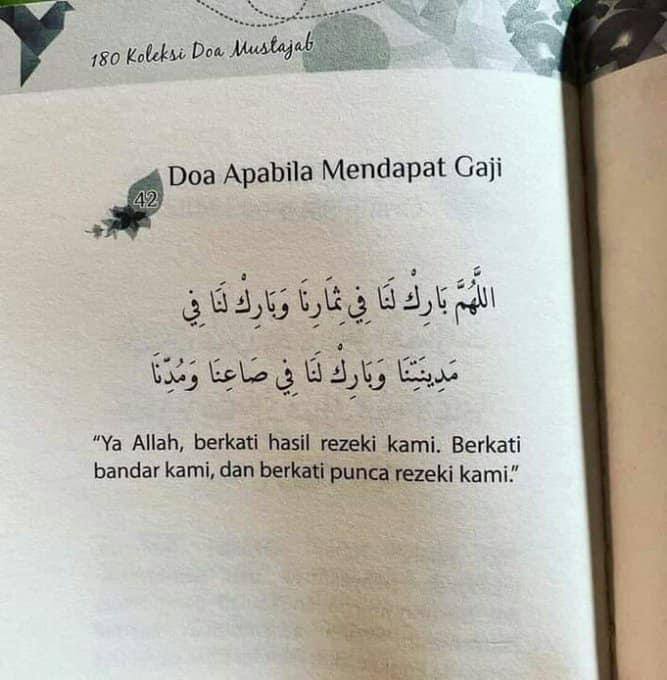 180 Koleksi Doa Mustajab
Doa Apabila Mendapat Gaji
42
اللَّهُمَّ بَارِكْ لَنَا فِي ثِمَارِنَا وَبَارِكْ لَنَا فِي
مَدِينَتِنَا وَبَارِكْ لَنَا فِي صَاعِنَا وَمُدِّنَا
“Ya Allah, berkati hasil rezeki kami. Berkati
bandar kami, dan berkati punca rezeki kami.”